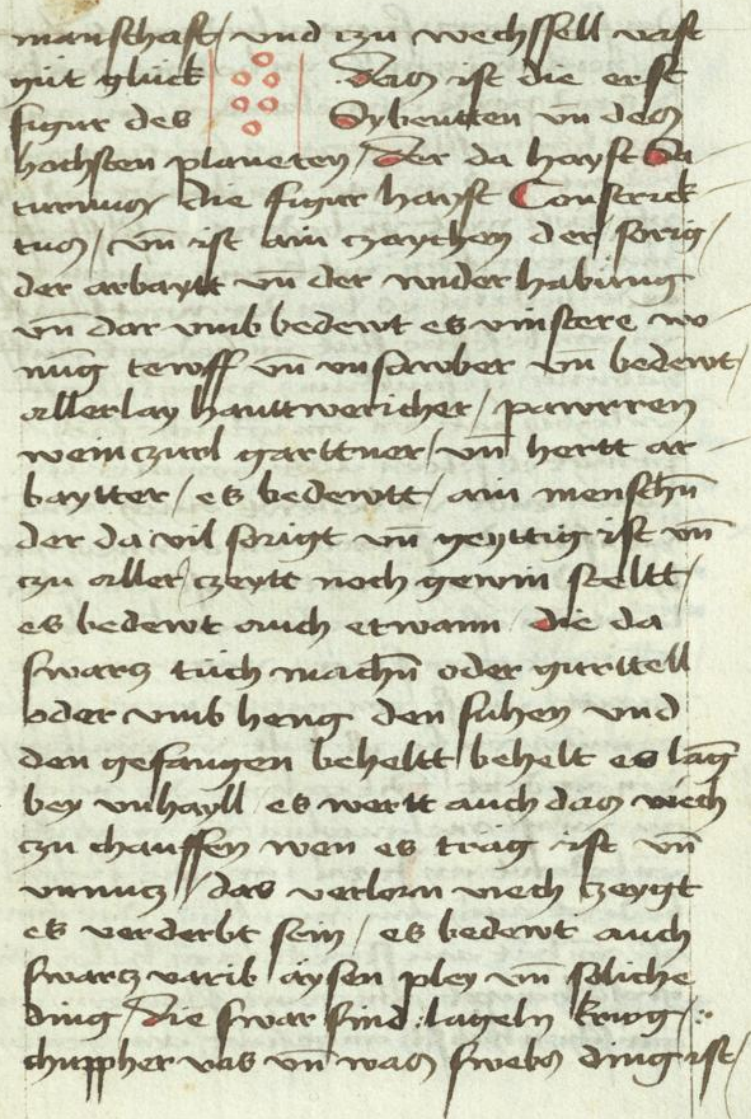 manschaft / vnd czu wechssell vast
gůt glück Das ist die erst
figur des Sybentten vn̄ des
hochsten planeten / Der da hayst Sa
turnus die figur hayst Constrick
tus / vn̄ ist ain czaychen der sorig /
der arbaytt vn̄ der wider habung
vn̄ dar vmb bedewt es vinstere wo
nūg tewff vn̄ vnsawber vn̄ bedewt /
allerlay hanttwericher / pawrren
weinczurl garttner / vn̄ hertt ar
baytter / es bedewtt / ain menschn̄
der da vil sorigt vn̄ geyttig ist vn̄
czu aller czeytt noch gewin steltt /
es bedewt auch etwann die da
swarcz tuch machn̄ oder gurttell
oder vmb heng den suhen vnd
den gefangen beheltt behelt es lāg
bey vnhayll es wertt auch das viech
czu chauffen wen es trag ist vn̄
vnnucz / das verlorn viech czeygt
es verderbt sein / es bedewt auch
swarcz varib äysen pley vn̄ soliche
ding / die swar sind : lageln krwg /
chuppher vas vn̄ was swebs ding ist /